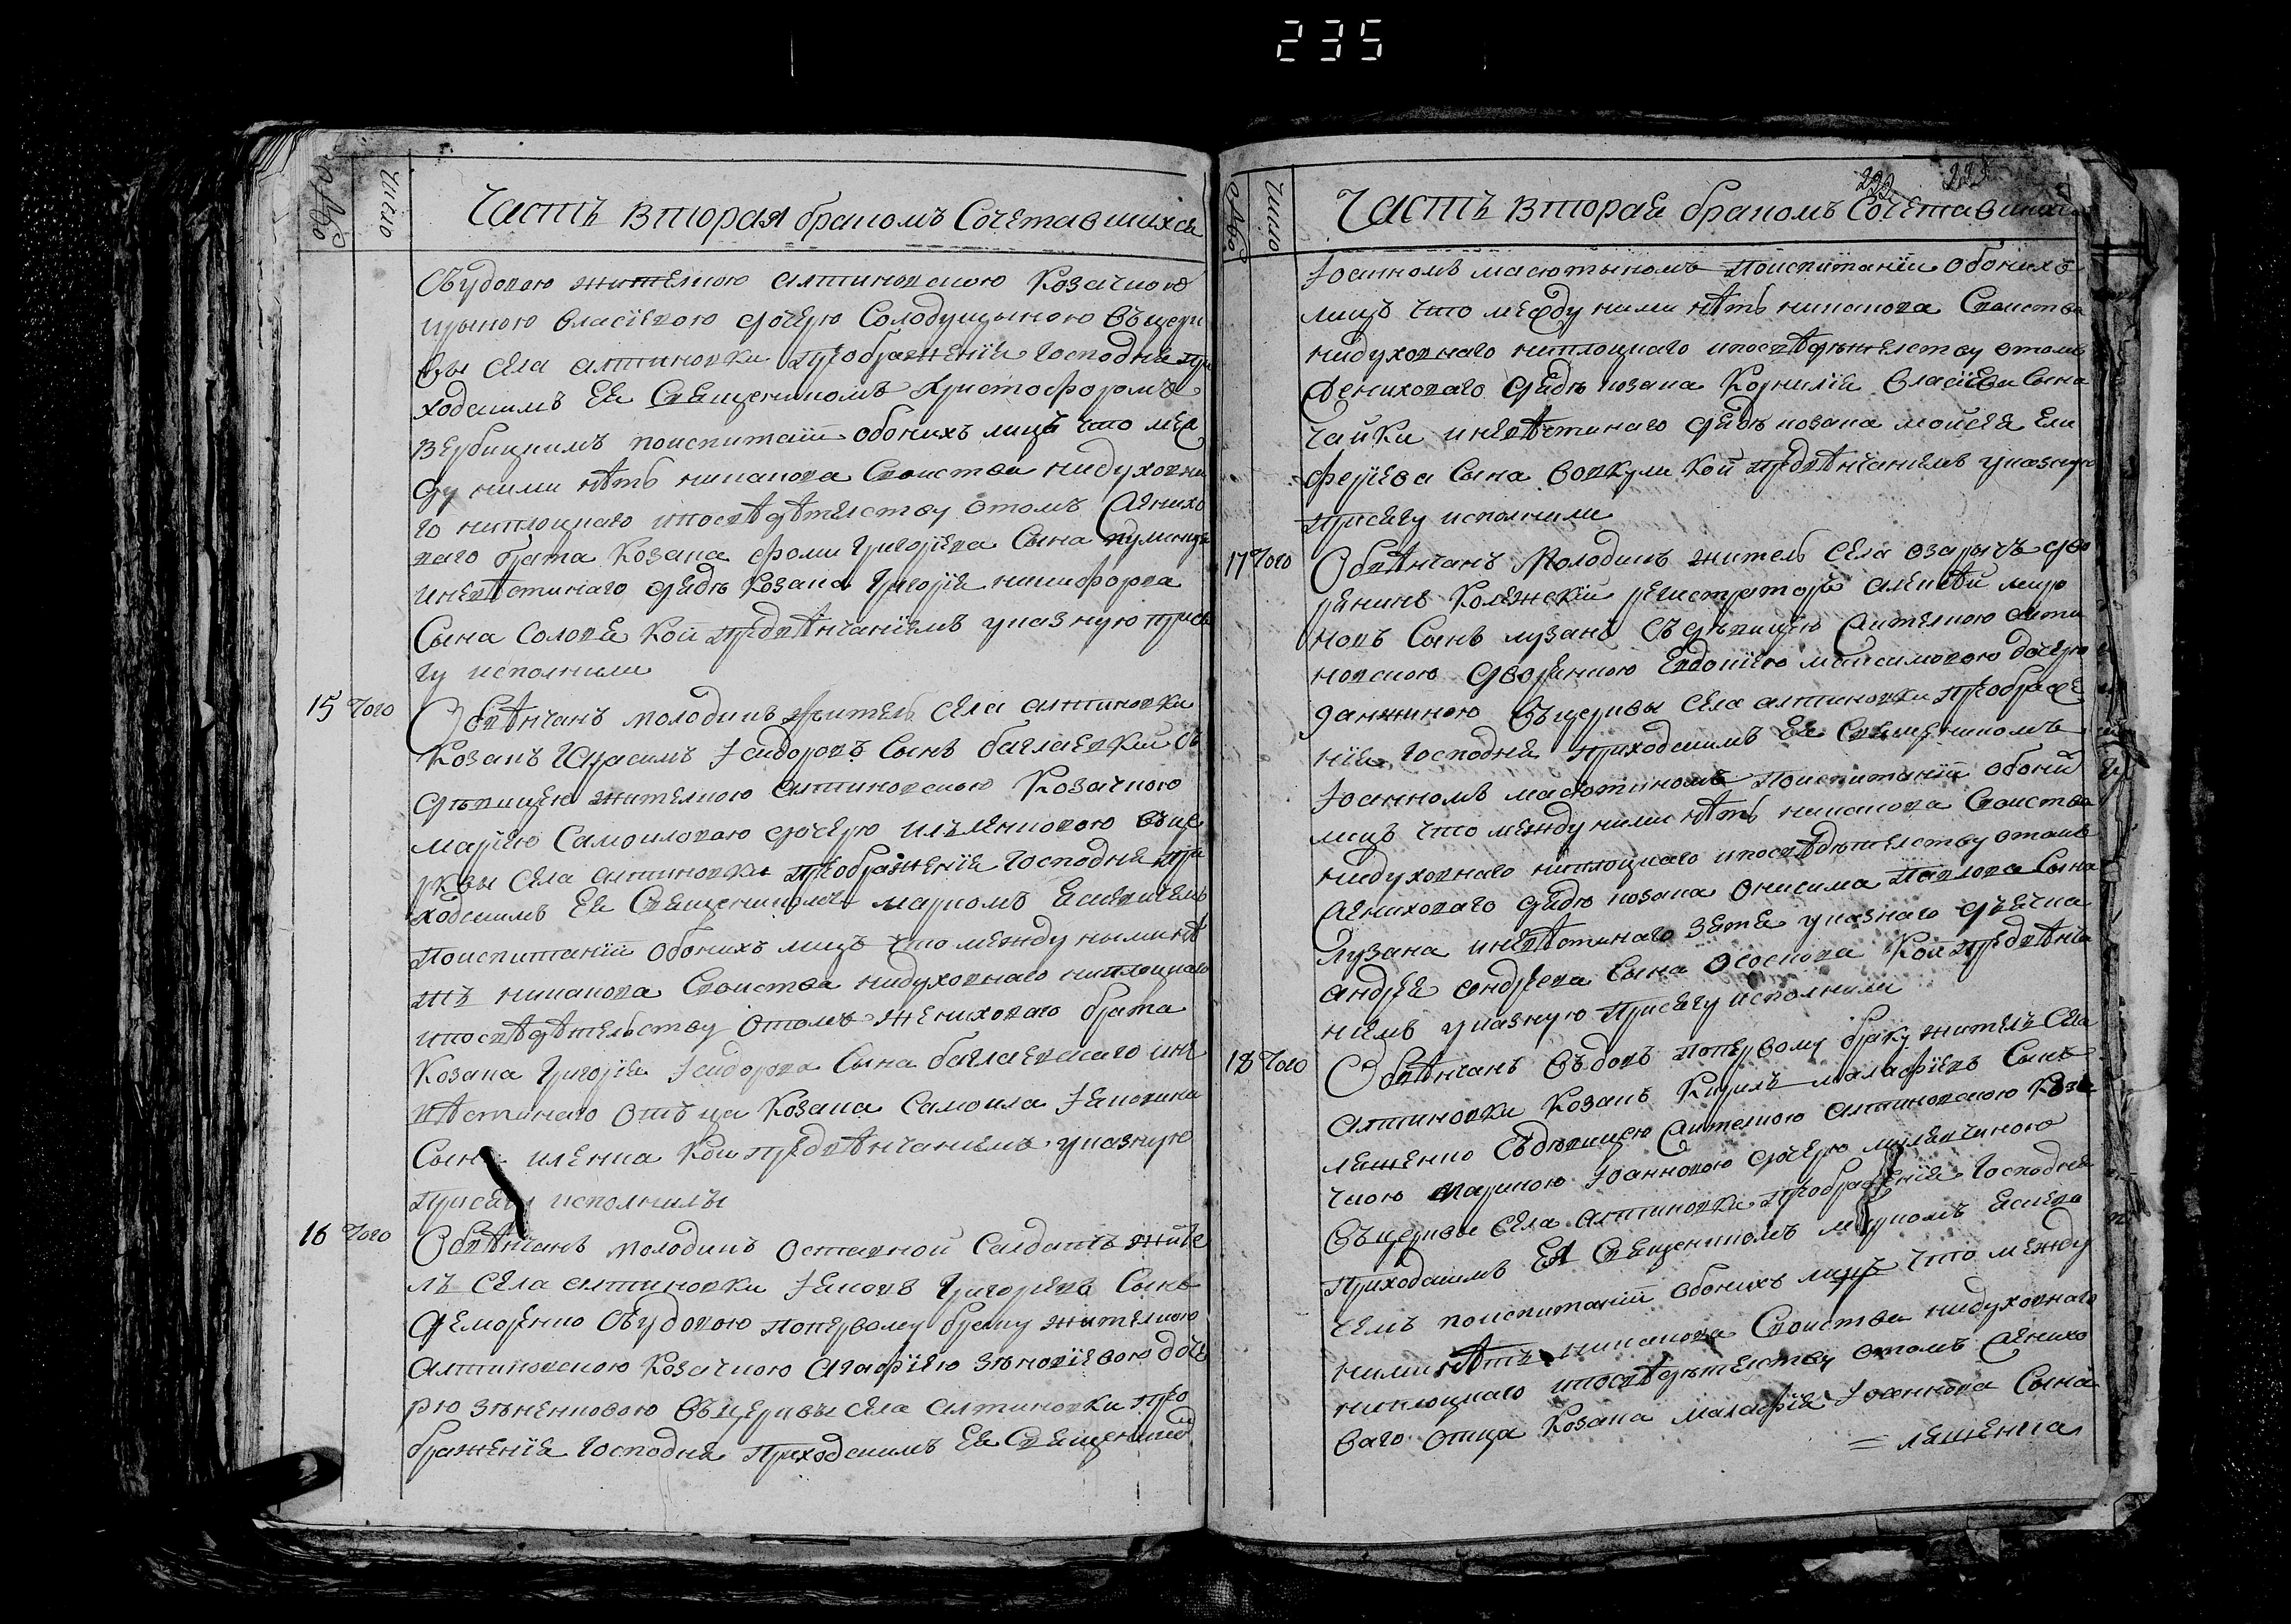 235
Число
Часть вторая бракомъ сочетавшихся
съ удовою жителкою алтиновскою козачкою
ириною власіевою дочерю Солодущыною въ церк
вы села алтиновки преображенія Господня при
ходскимъ Ея Священникомъ Христофоромъ
вербицкимъ поиспитаніи обоихъ лицъ что меж
ду ними нѣтъ никакова Своиства нидуховна
го ниплоцкаго ипосвѣдѣтелству отомъ женихо
ваго брата Козака фоми Григоріева Сына
иневѣстинаго дядѣ Козака Григорія никифорова
Сына Соловя Кои предвѣнчаніемъ указную прися
гу исполнили
15 Того Обвѣнчанъ молодикъ житель села алтиновки
Козакъ Герасимъ Ісидоровъ Сынъ баглаевкій съ
дѣвицею жителкою алтиновскою Козачкою
маріею Самоиловою дочерю ильенковою въ це
рквы села алтиновки преображенія Господня при
ходскимъ Ея Священникомъ маркомъ Есиевичемъ
поиспитаніи обоихъ лицъ что между ными нѣ
тъ никакова Своиства нидуховнаго ниплоцкаго
ипосвѣдѣтельству отомъ жениховаго брата
Козака Григорія Ісидорова Сына баглаевскаго ине
вѣстинаго отъца Козака Самоила Іаковика
Сына иленка Кои предвѣнчаніемъ указную
присягу исполнилы
16 Того Обвѣнчанъ молодикъ оставной Салдатъ жите
лъ села алтиновки Іаковъ Григоріевъ Сынъ
Яеморенко съ удовою попервому браку жителкою
Алтиновскою Козачкою Агафіею зѣновіевою доче
рю зѣненковою въ церквы села алтиновки прео
браженія Господня приходскимъ Ея Священникомъ
Число
222 222
Часть вторая бракомъ сочетавшихся
Іоанномъ масютыномъ поиспитаніи обоихъ
лицъ что между ними нѣтъ никакова Своиства
нидуховнаго ниплоцкаго ипосвѣдѣтелству отомъ
жениховаго дядѣ козака Корнилія власіева Сына
Чайки иневѣстинаго дядѣ козака моисея Ели
феріева Сына вовкули Кои предвѣнчаніемъ указную
присягу исполнили
17 Того Обвѣнчанъ молодикъ житель села озаричъ дво
рянинъ Колежскій регистраторъ алексѣй миро
новъ Сынъ лузанъ съ дѣвицею жителкою алти
новскою дворянкою Евдокіею максимовою дочерю
даниною въ церквы села алтиновки преображе
нія Господня приходскимъ Ея Священникомъ
Іоанномъ масютиномъ поиспитаніи обоихъ
лицъ что между ними нѣтъ никакова Своиства
нидуховнаго ниплоцкаго ипосвѣдѣтелству отомъ
жениховаго дядѣ козака Онисима павлова Сына
Лузана иневѣстинаго зятя указнаго дьячка
андрея андреева Сына Ососкова Кои предвѣнча
ніемъ указную присягу исполнили
18 Того Обвѣнчанъ въдовъ поперъвому браку жителъ села
алтиновки Козакъ Кирилъ малафіевъ Сынъ
лященко съ дѣвицею жителкою алтиновскою Коза
чкою мариною Іоанновою дочерю
въ церквы села алтиновки преображенія Господня
приходскимъ Ея Священникомъ маркомъ Есиеви
чемъ поиспитаніи обоихъ лицъ что между
ними нѣтъ никакова Своиства нидуховнаго
ниплоцкаго ипосвѣдѣтелству отомъ женихо
ваго отца Козака малафія Іоаннова Сына
= лященка